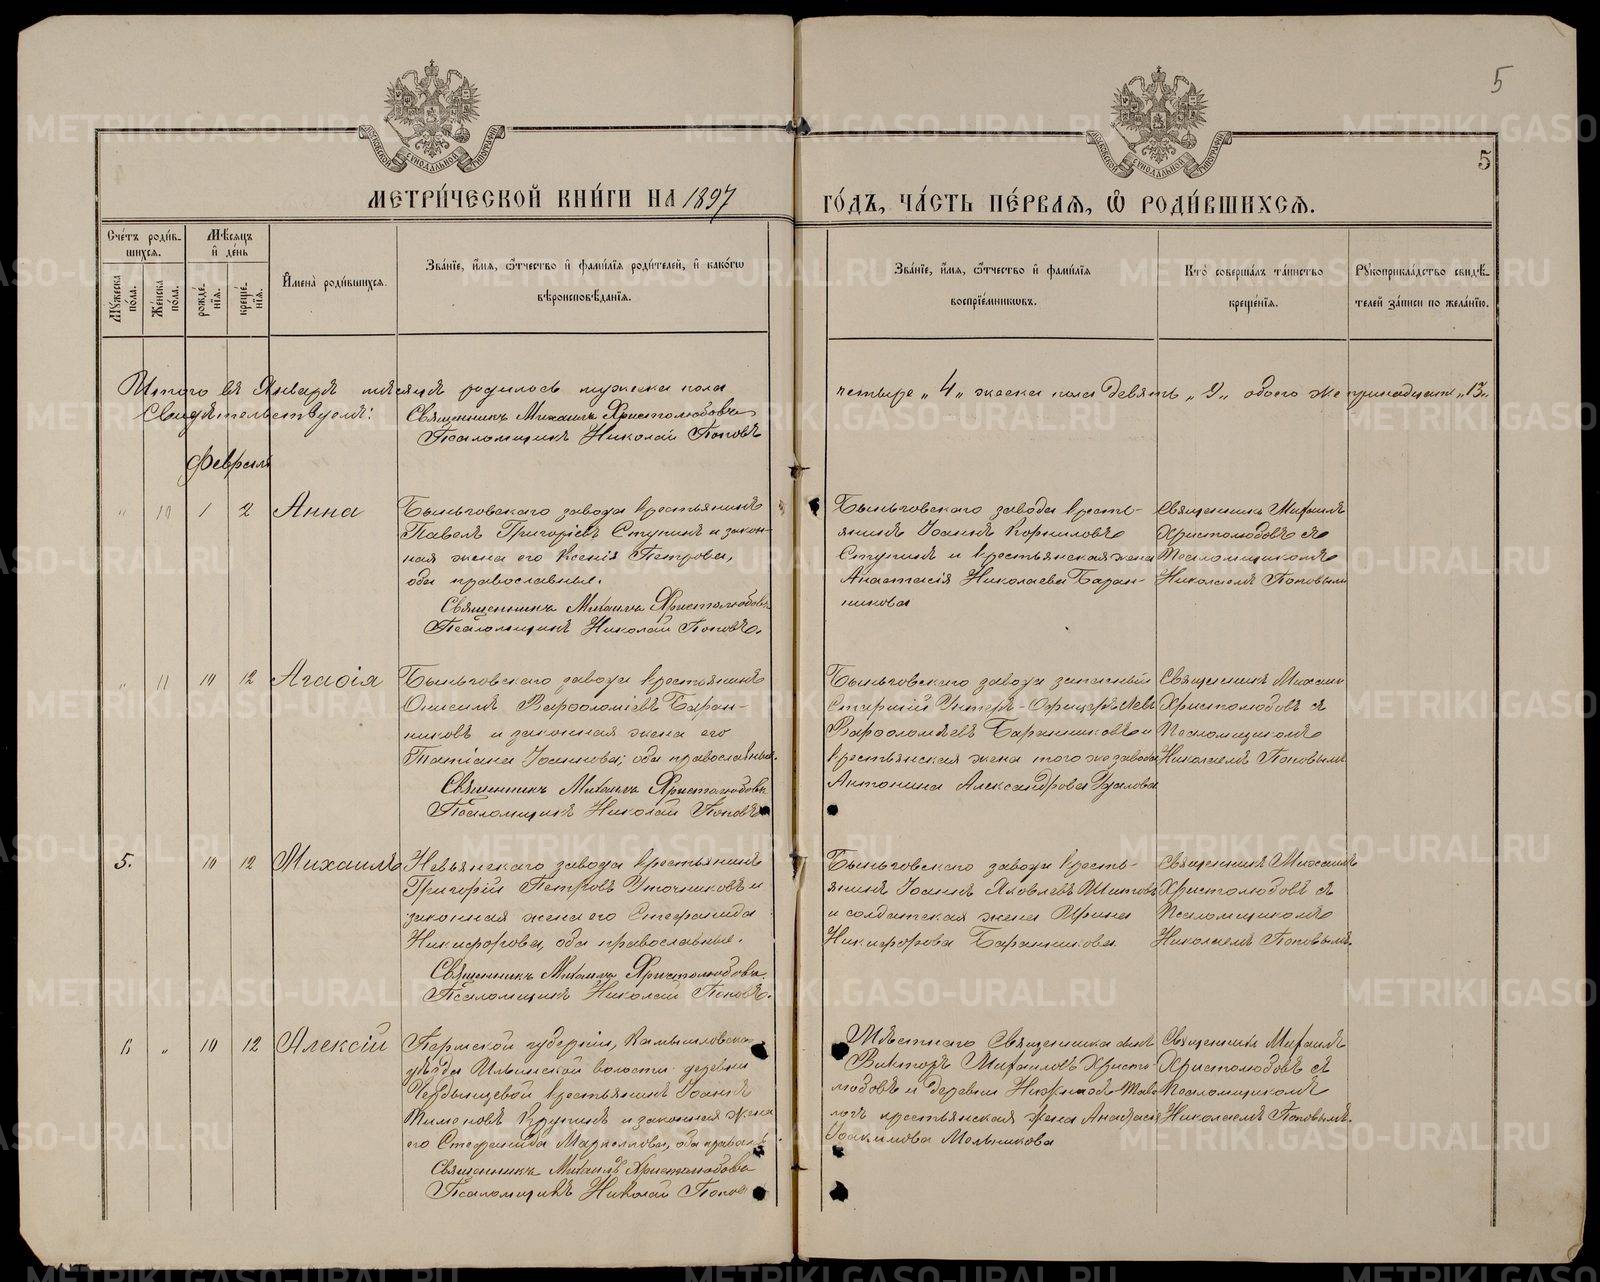 5
5
МОСКОВСКОЙ СѴНОДАЛЬНОЙ ТИПОГРАФІИ
МОСКОВСКОЙ СѴНОДАЛЬНОЙ ТИПОГРАФІИ
МЕТРИ́ЧЕСКОЙ КНИ́ГИ НА 1897
ГО́ДЪ, ЧА́СТЬ ПЕ́РВАѦ, Ѡ҆ РОДИ́ВШИХСѦ.
Сче́тъ роди́в-
шихсѧ.
Мѣ́сѧцъ
и҆ де́нь
Мꙋ́жеска
по́ла.
Же́нска
по́ла.
рожде́-
нїѧ.
креще́-
нїѧ.
И҆мена̀ роди́вшихсѧ.
Зва́нїе, и҆́мѧ, ѻ҆́тчество и҆ фами́лїѧ роди́телей, и҆ како́гѡ
вѣроисповѣ́данїѧ.
Зва́нїе, и҆́мѧ, ѻ҆́тчество и҆ фами́лїѧ
воспрїе́мникѡвъ.
Кто̀ соверша́лъ та́инство
креще́нїѧ.
Рꙋкоприкла́дство свидѣ́-
телей за́писи по жела́нїю.
Итого въ Январѣ мѣсяцѣ родилось мужеска пола
четыре „4„ женска пола девять „9„ обоего же тринадцать „13„
Свидѣтельствуемъ:
Священникъ Михаилъ Христолюбовъ
Псаломщикъ Николай Поповъ
Февраль
„ 10 1 2 Анна
Быньговскаго завода крестьянинъ
Павелъ Григоріевъ Ступинъ и закон-
ная жена его Ксенія Петрова,
оба православные.
Священникъ Михаилъ Христолюбовъ
Псаломщикъ Николай Поповъ.
Быньговскаго завода кресть-
янинъ Іоаннъ Корниловъ
Ступинъ и крестьянская жена
Анастасія Николаева Баран-
никова
Священникъ Михаилъ
Христолюбовъ съ
Псаломщикомъ
Николаемъ Поповымъ
„ 11 10 12 Агаѳія
Быньговскаго завода крестьянинъ
Онисимъ Варѳоломіевъ Баран-
никовъ и законная жена его
Татіана Іоаннова; оба православные.
Священникъ Михаилъ Христолюбовъ
Псаломщикъ Николай Поповъ
Быньговскаго завода запасный
Старшій Унтеръ-Офицеръ
Варѳоломѣевъ Баранниковъ и
крестьянская жена того же завода
Антонина Александрова
Священникъ Михаилъ
Христолюбовъ съ
Псаломщикомъ
Николаемъ Поповымъ
5. 10 12 Михаилъ
Невьянскаго завода крестьянинъ
Григорій Петровъ Уточниковъ и
законная жена его Стефанида
Никифорова, оба православные.
Священникъ Михаилъ Христолюбовъ.
Псаломщикъ Николай Поповъ.
Быньговскаго завода кресть-
янинъ Іоаннъ Яковлевъ Шитовъ
и солдатская жена Ирина
Никифорова Баранникова
Священникъ Михаилъ
Христолюбовъ съ
Псаломщикомъ
Николаемъ Поповымъ.
6 „ 10 12 Алексій
Пермской губерніи, Камышловска
уѣзда Ильинской волости деревни
крестьянинъ Іоаннъ
Пименовъ Крупинъ и законная жена
его Стефанида Маркеллова, оба правосл.
Священникъ Михаилъ Христолюбовъ
Псаломщикъ Николай Попов
Мѣстнаго Священника сынъ
Викторъ Михаиловъ Христо-
любовъ и деревни
крестьянская жена Анастасія
Іоакимова Мельникова
Священникъ Михаилъ
Христолюбовъ съ
Псаломщикомъ
Николаемъ Поповымъ.
METRIKI.GASO-URAL.RU